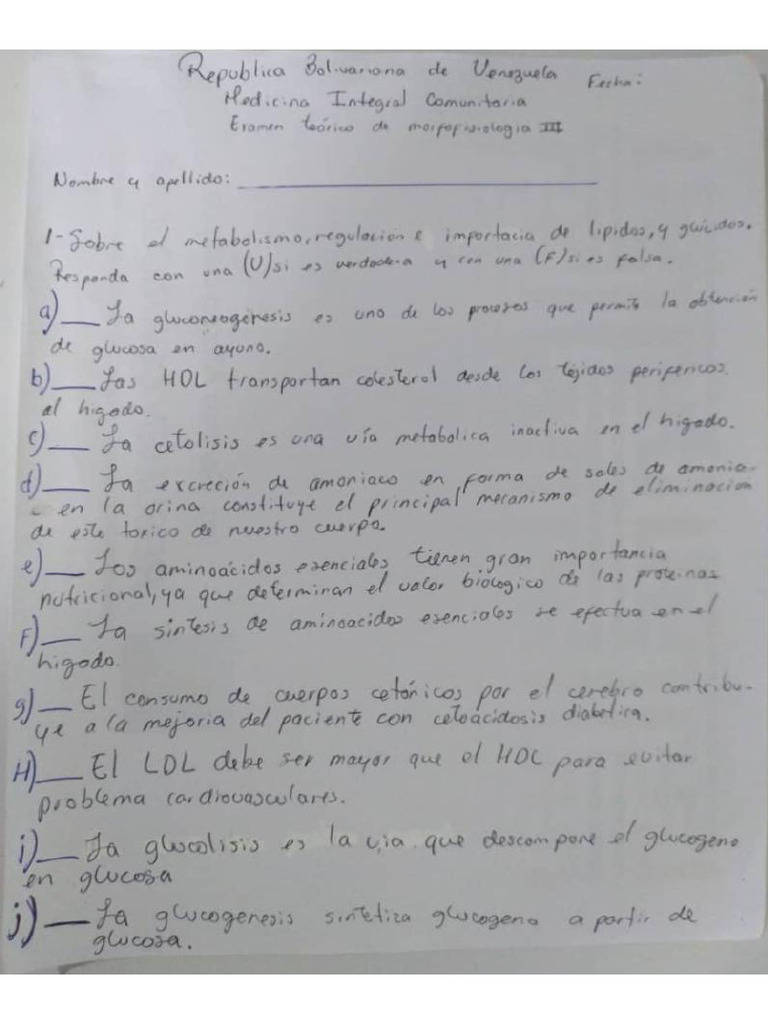 Republica Bolivariana de Venezuela Fecha:
Medicina Integral Comunitaria
Examen teórico de morfofisiologia III
Nombre y apellido: ____________
1- Sobre el metabolismo, regulación e importacia de lipidos, y glúcidos.
Responda con una (V) si es verdadera y con una (F) si es falsa.
a)___ La gluconeogénesis es uno de los procesos que permite la obtención
de glucosa en ayuno.
b)___ Las HDL transportan colesterol desde los tejidos perifericos
al higado.
c)___ La cetolisis es una vía metabolica inactiva en el higado.
d)___ La excreción de amoniaco en forma de sales de amonia-
en la orina constituye el principal mecanismo de eliminación
de este toxico de nuestro cuerpo.
e)___ Los aminoácidos esenciales tienen gran importancia
nutricional, ya que determinan el valor biologico de las proteinas
F)___ La sintesis de aminoacidos esenciales se efectua en el
higado.
g)___ El consumo de cuerpos cetónicos por el cerebro contribu-
ye a la mejoria del paciente con cetoácidosis diabetica.
H)___ El LDL debe ser mayor que el HDL para evitar
problema cardiovasculares.
i)___ La glucolisis es la via que descompone el glucogeno
en glucosa
j)___ La glucogenesis sintetiza glucogeno a partir de
glucosa.